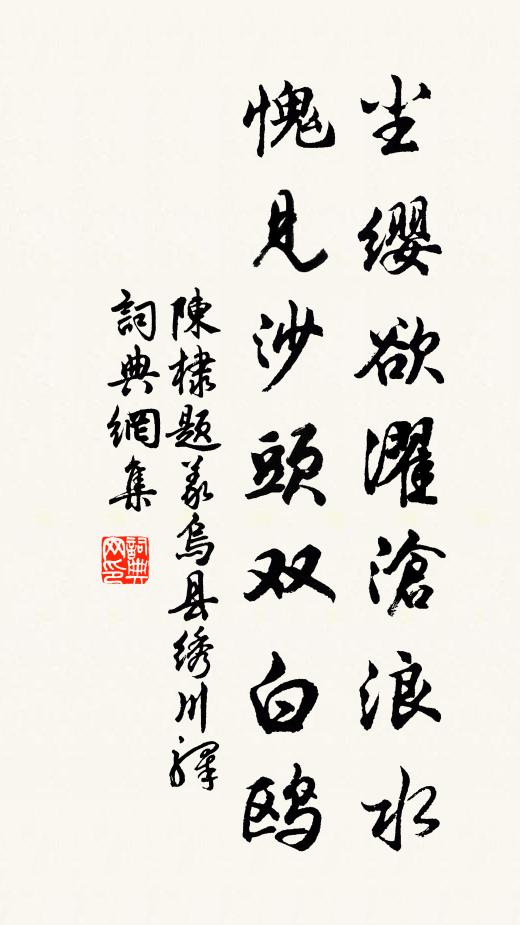 尘缨欲濯滄浪水
愧见沙頭双白鸥
陳棣题義烏县绣川驿
詞典網集
詞典网印